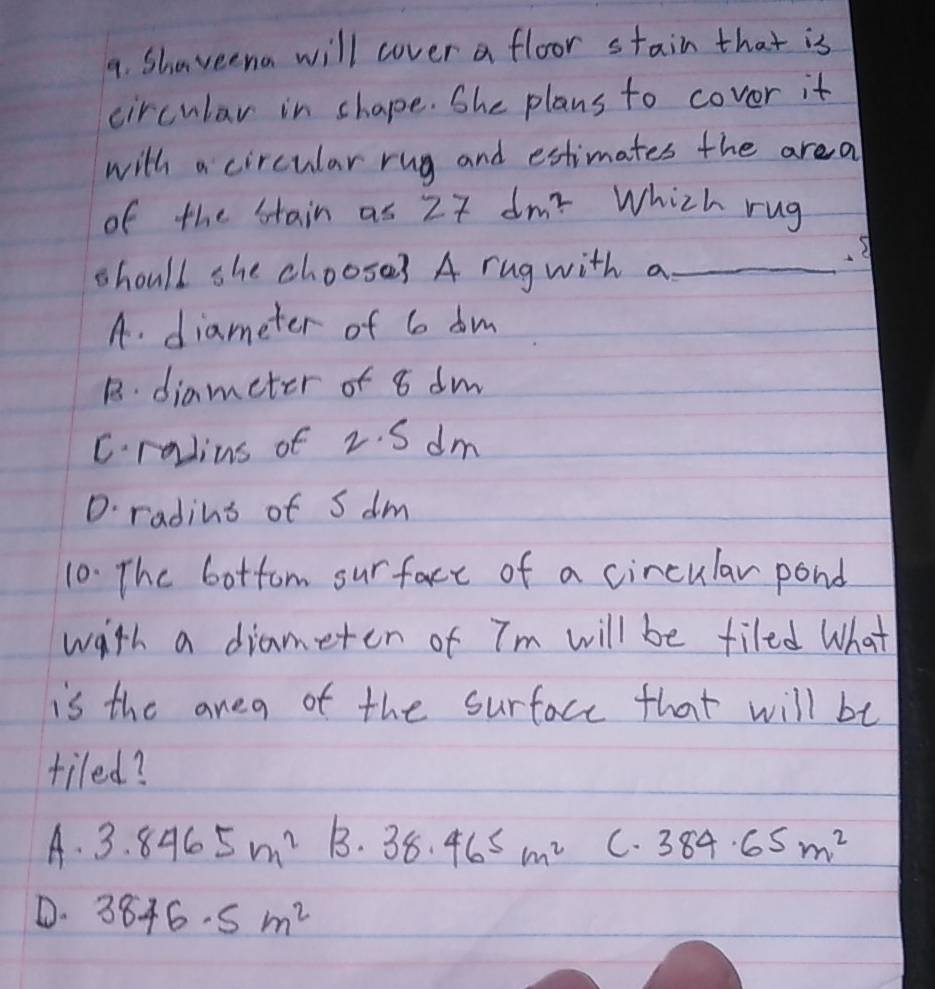 9. Shaveena will cover a floor stain that is
circular in shape. She plans to cover it
with a circular rug and estimates the area
of the stain as 27 dm² Which rug
should she choose? A rug with a ______.?
A. diameter of 6 dm
B. diameter of 8 dm
C. radius of 2.5 dm
D. radius of 5 dm
10. The bottom surface of a circular pond
with a diameter of 7m will be tiled What
is the area of the surface that will be
tiled?
A. 3.8465 m² B. 38.465 m² C. 384.65 m²
D. 3846.5 m²